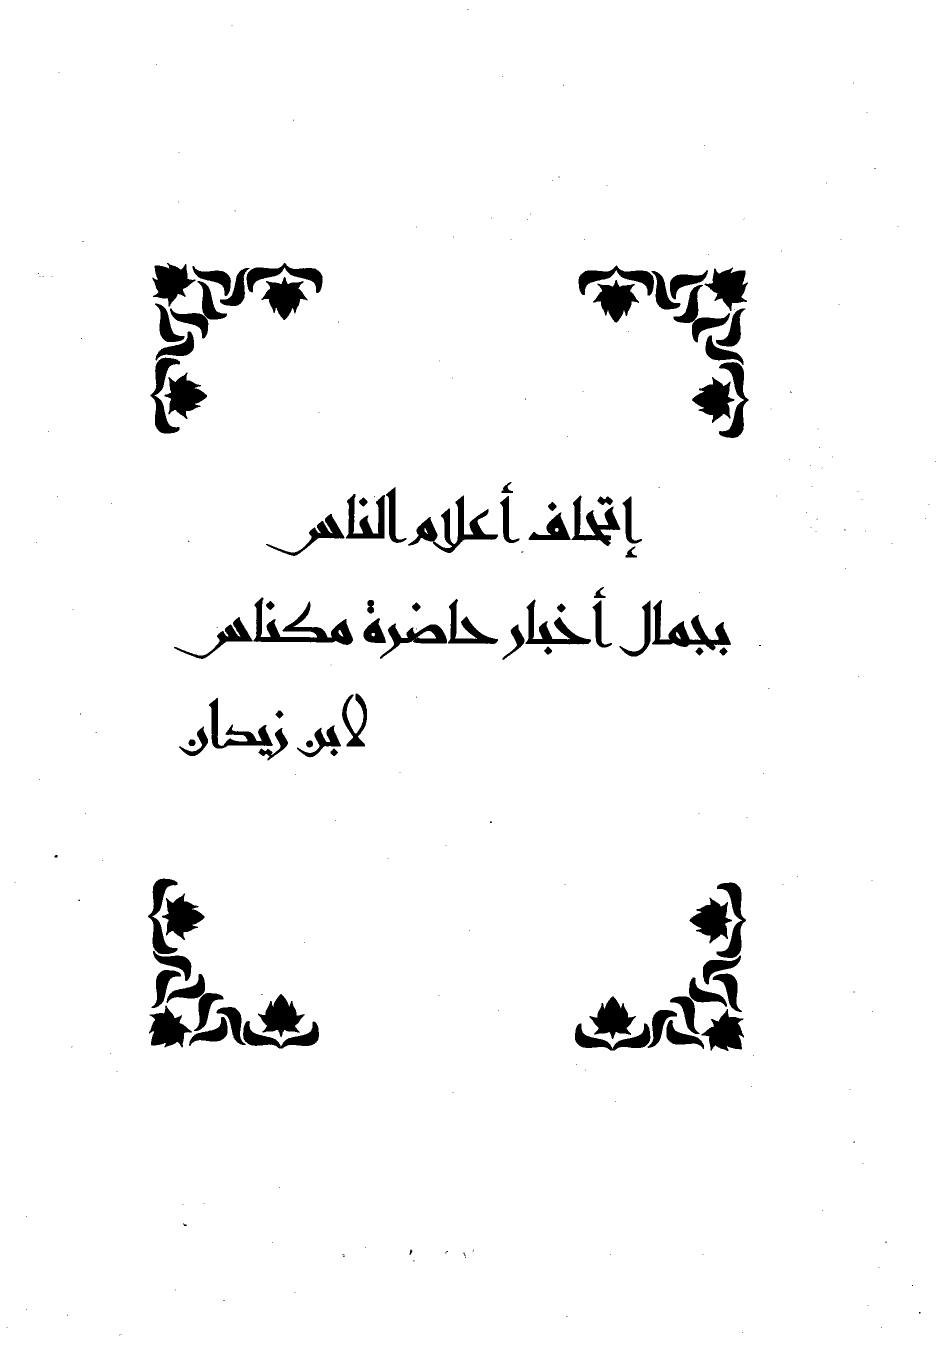 إتحاف أعلام الناس
بجمال أخبار حاضرة مكناس
لابن زيدان